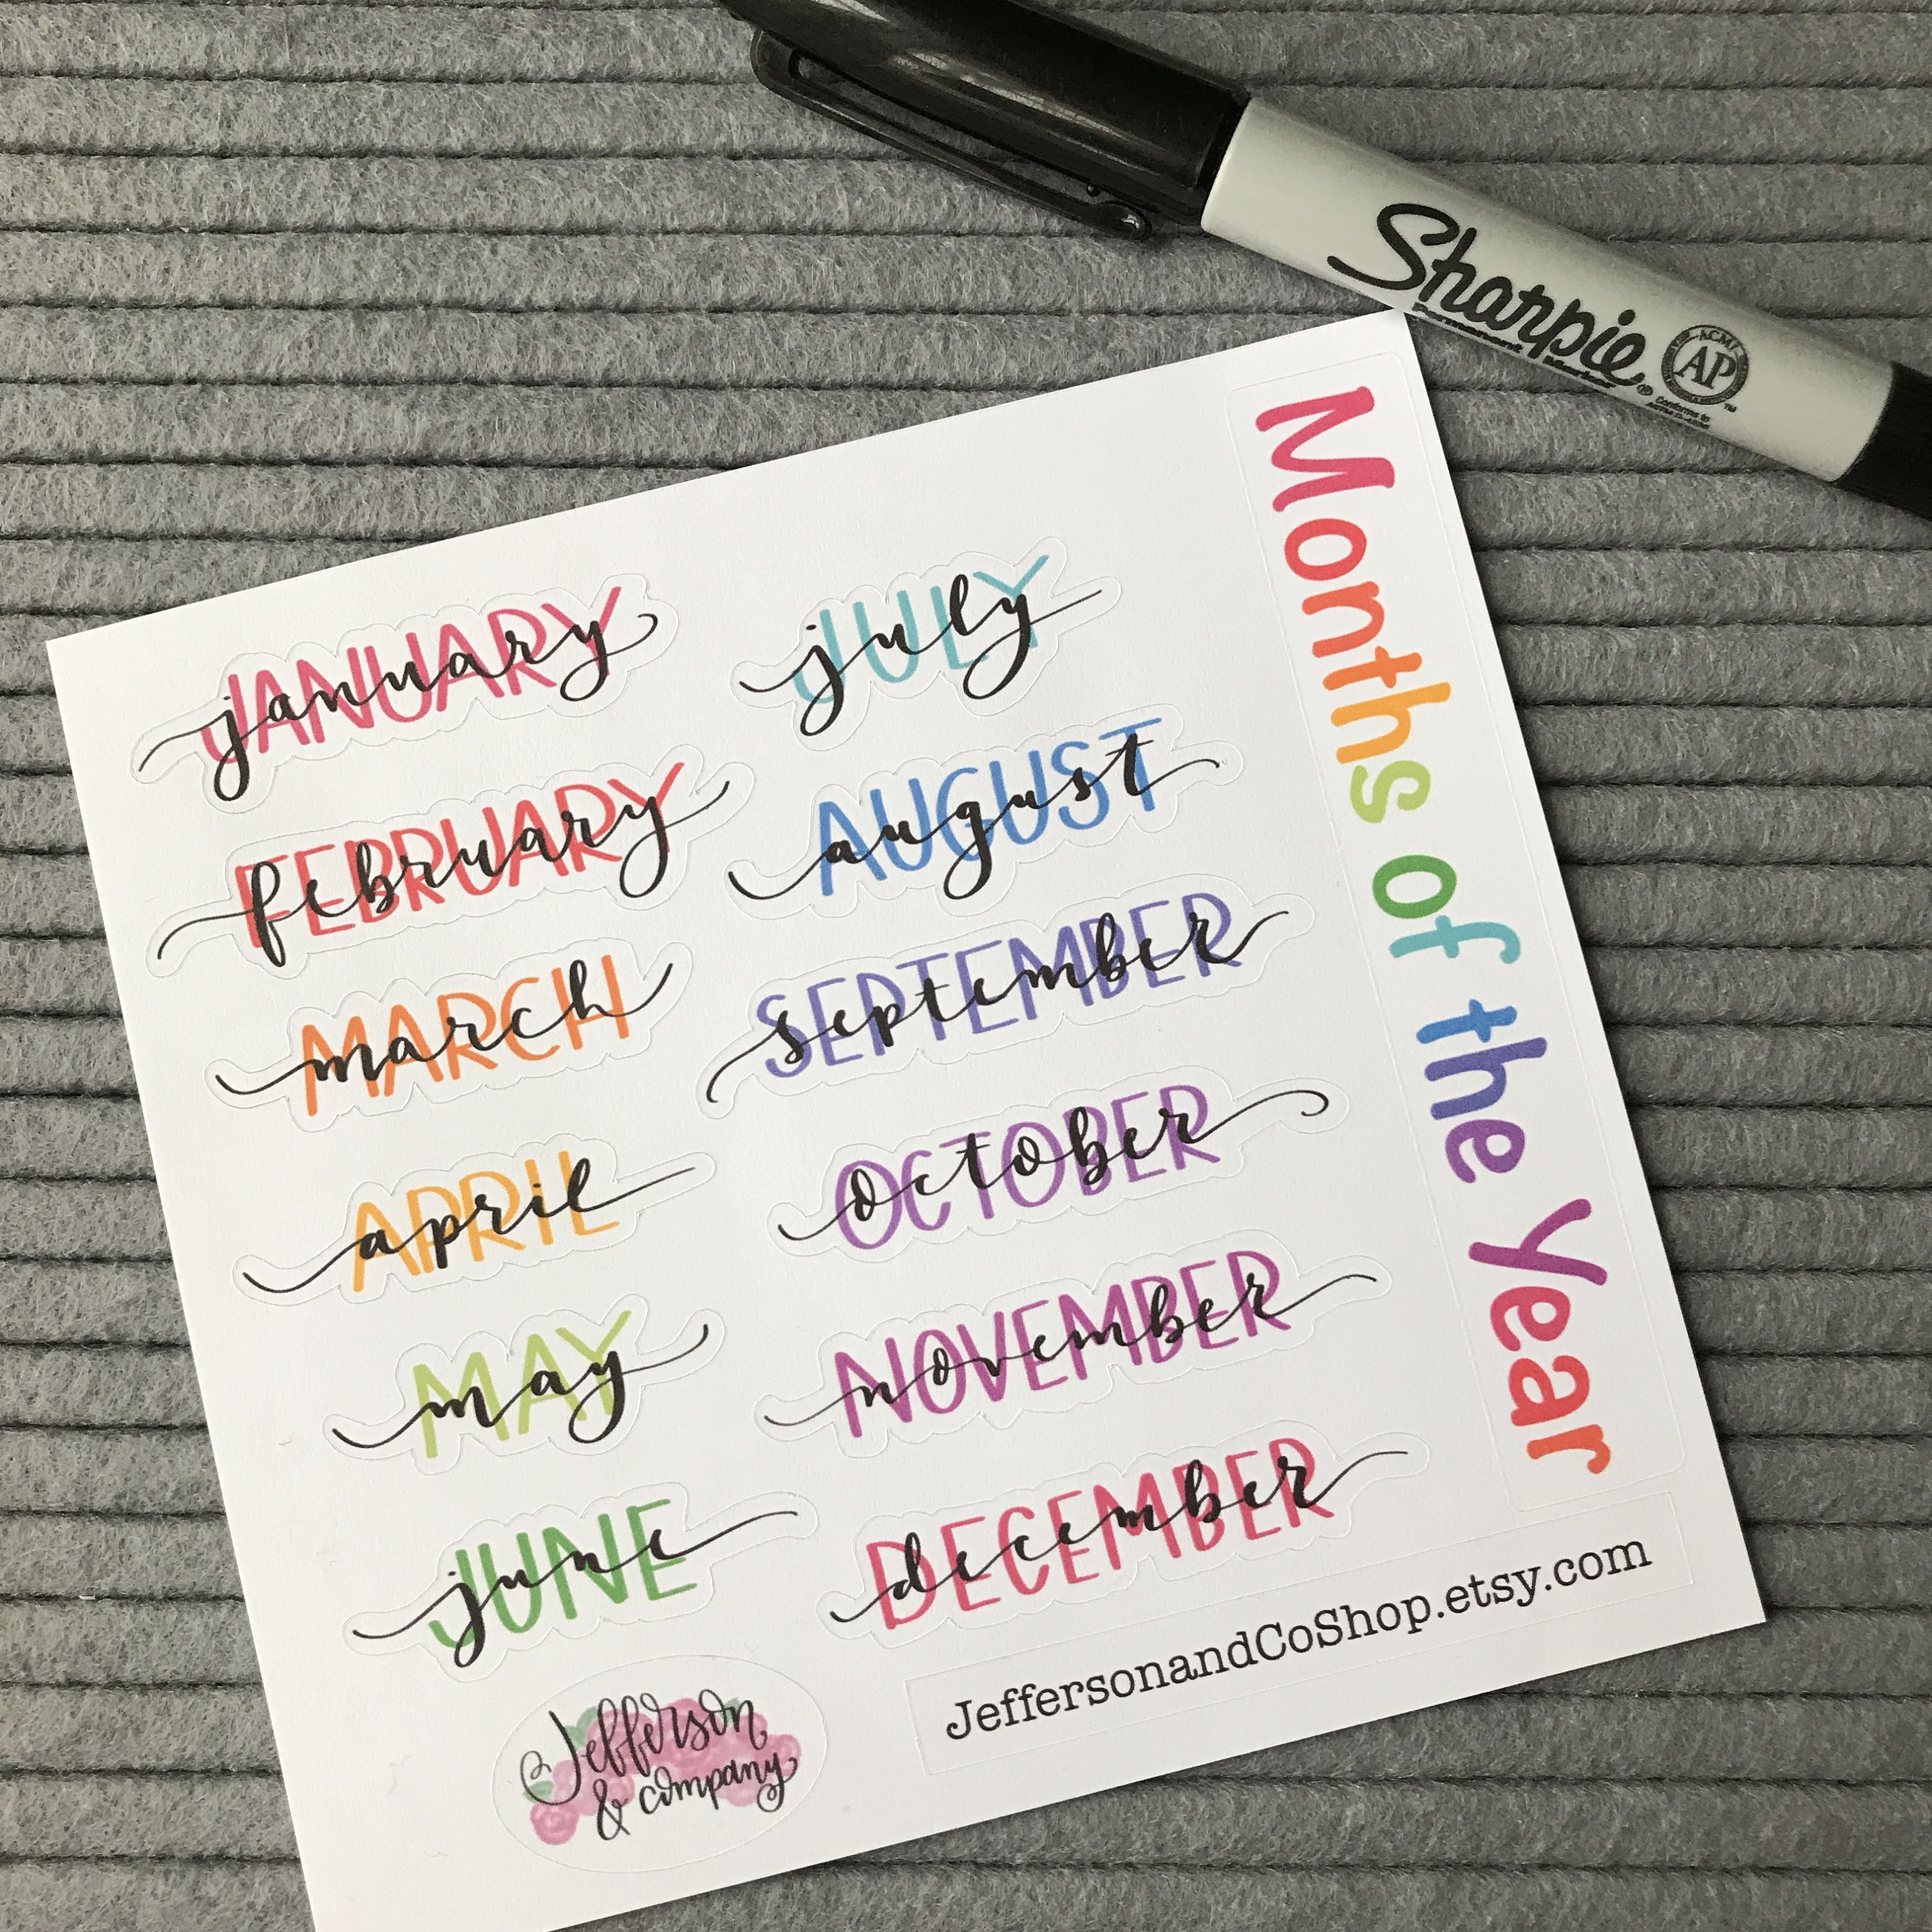 Sharpie®
Permanent Marker
ACMI
AP
TM
Conforms to
Months of the Year
JANUARY
january
FEBRUARY
february
MARCH
march
APRIL
april
MAY
may
JUNE
june
JULY
july
AUGUST
august
SEPTEMBER
september
OCTOBER
october
NOVEMBER
november
DECEMBER
december
Jefferson
& company
JeffersonandCoShop.etsy.com